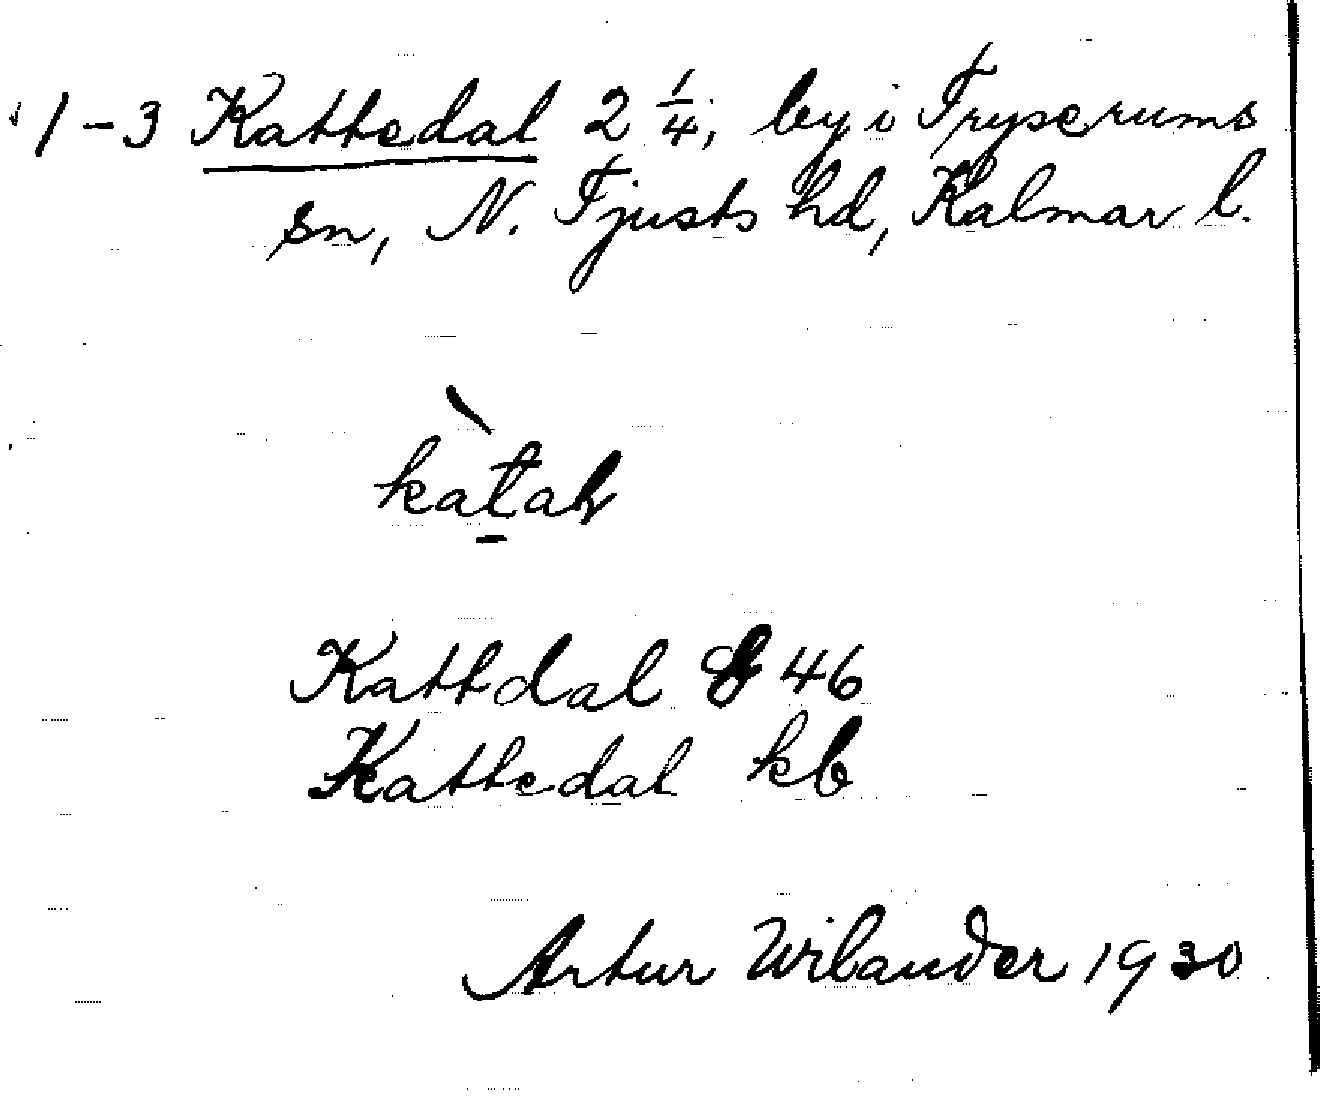 1-3 Kattedal 2 1/4, by i Tryserums
sn, N. Tjusts hd, Kalmar l.
kàt̠aɫ
Kattdal G 46
Kattedal kb
Artur Wilander 1930